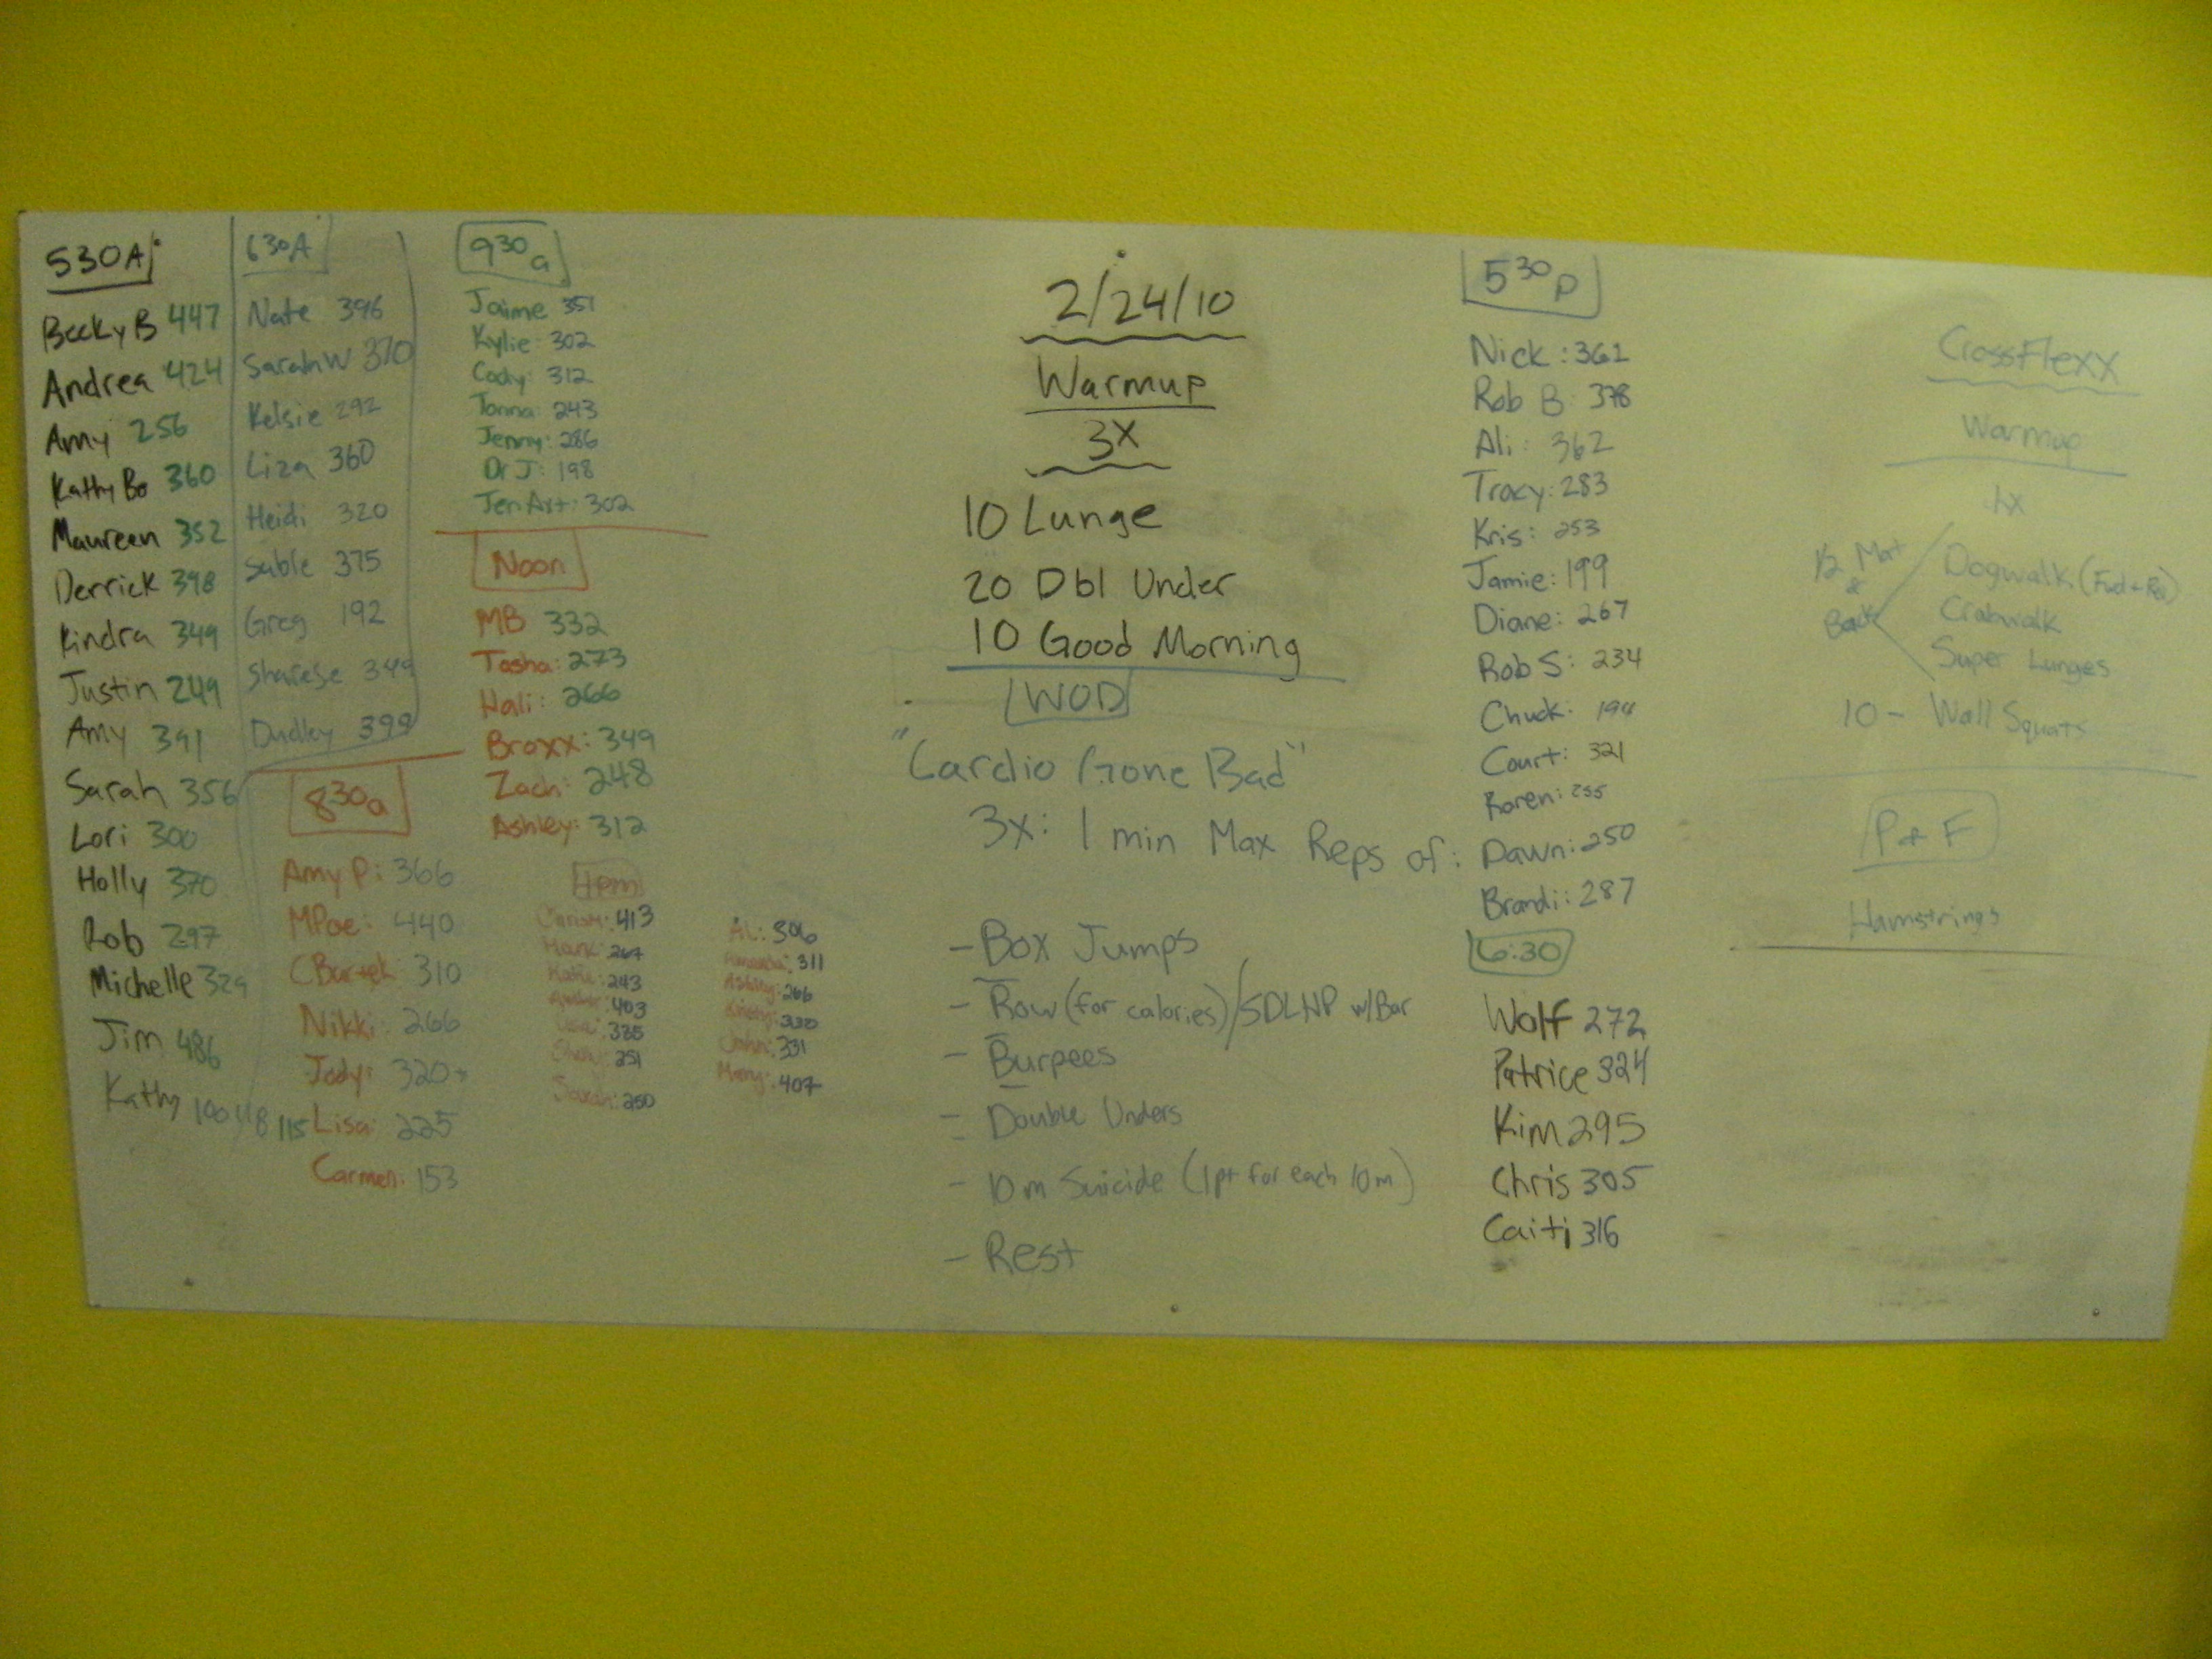 530A
Becky B 447
Andrea 424
Amy 256
Kathy Bo 360
Maureen 352
Derrick 398
Kindra 349
Justin 249
Amy 391
Sarah 356
Lori 300
Holly 370
Rob 297
Michelle 329
Jim 486
Kathy 115
630A
Nate 396
Sarah W 370
Kelsie 292
Liza 360
Heidi 320
Suble 375
Greg 192
Sharese 349
Dudley 399
830a
Amy P: 366
MPoe: 440
CBartek 310
Nikki: 266
Jody: 320
Lisa: 225
Carmen: 153
930a
Jaime 351
Kylie: 302
Cody: 312
Tonna: 243
Jenny: 286
Dr J: 198
Jen Art: 302
Noon
MB 332
Tasha: 273
Hali: 266
Broxx: 349
Zach: 248
Ashley: 312
413
Mark: 267
Katie: 243
403
335
251
Sarah: 250
AL: 306
Amanda: 311
Ashley: 266
Kristy: 330
John: 331
407
2/24/10
Warmup
3X
10 Lunge
20 Dbl Under
10 Good Morning
WOD
"Cardio Gone Bad"
3x: 1 min Max Reps of:
- Box Jumps
- Row (for calories)/SDLHP w/Bar
- Burpees
- Double Unders
- 10m Suicide (1pt for each 10m)
- Rest
530p
Nick: 361
Rob B: 378
Ali: 362
Tracy: 283
Kris: 253
Jamie: 199
Diane: 267
Rob S: 234
Chuck: 194
Court: 321
Karen: 255
Dawn: 250
Brandi: 287
6:30
Wolf 272
Patrice 324
Kim 295
Chris 305
Caiti 316
CrossFlexx
Warmup
1/2 Mat & Back
Dogwalk (Fwd + Rev)
Crabwalk
Super Lunges
10 - Wall Squats
P & F
Hamstrings